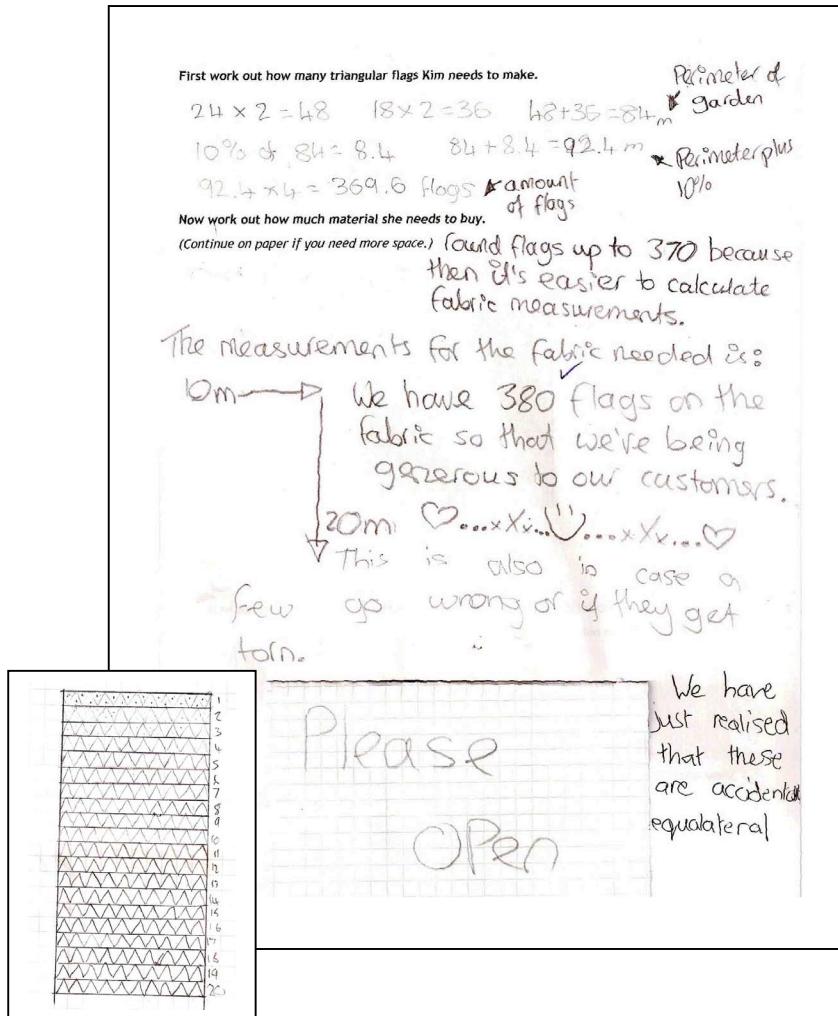 First work out how many triangular flags Kim needs to make.
Perimeter of
garden
24 x 2 = 48 18 x 2 = 36 48+36 = 84m
10% of 84 = 8.4 84 + 8.4 = 92.4 m
Perimeter plus
10%
92.4 x 4 = 369.6 flags
amount
of flags
Now work out how much material she needs to buy.
(Continue on paper if you need more space.)
round flags up to 370 because
then it's easier to calculate
fabric measurements.
The measurements for the fabric needed is:
10m
We have 380 flags on the
fabric so that we're being
generous to our customers.
20m
This is also in case a
few go wrong or if they get
torn.
Please
Open
We have
just realised
that these
are accidental
equalateral
1
2
3
4
5
6
7
8
9
10
11
12
13
14
15
16
17
18
19
20